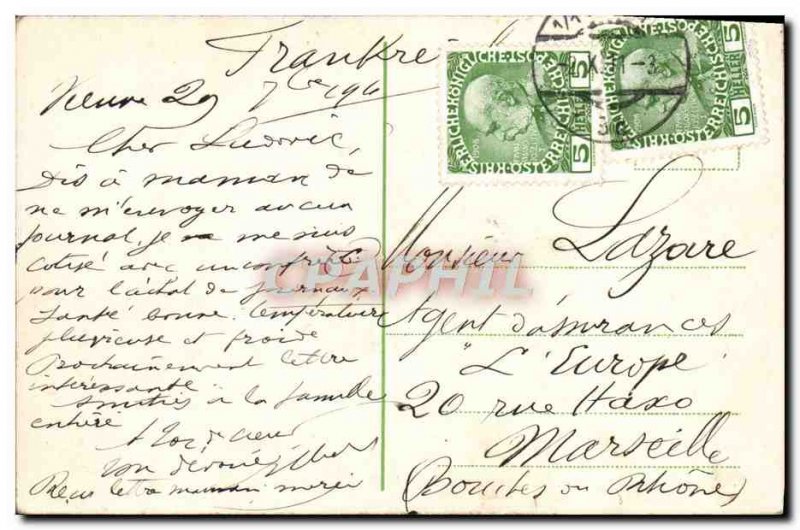 Frankré
Vienne 29 7bre 191
Cher Ludovic,
Dis à maman de
ne m'envoyer aucun
journal, je me suis
cotisé avec un confrère
pour l'achat de journaux
Santé bonne. température
pluvieuse et froide
Prochainement lettre
intéressante
amitiés à la famille
entière
A toi de cœur
ton dévoué
Reçu lettre maman merci
Monsieur Lazare
Agent d'assurances
"L'Europe"
20 rue Haxo
Marseille
(Bouches du Rhône)
KAISERLICHE KÖNIGLICHE ÖSTERREICHISCHE POST
5 HELLER 5
5 HELLER 5
CPAPHIL